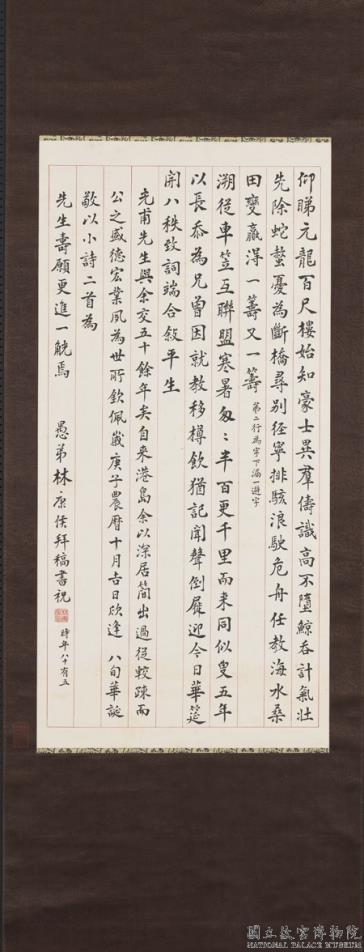 仰睇元龍百尺樓始知豪士異羣儔識高不墮鯨吞計氣壯
先除蛇螫憂為斷橋尋別徑寧排駭浪駛危舟任教海水桑
田變贏得一籌又一籌 第二行為字下漏一避字
溯從車笠互聯盟寒暑匆〻半百更千里而來同似叟五年
以長忝為兄曾因就教移樽飲猶記聞聲倒屣迎今日華筵
開八秩致詞端合敍平生
元甫先生與余交五十餘年矣自來港島余以深居簡出過從較疎而
公之盛德宏業夙為世所欽佩歲庚子農曆十月吉日欣逢 八旬華誕
敬以小詩二首為
先生壽願更進一觥焉
愚弟林康侯拜稿書祝 時年八十有五
國立故宮博物院
NATIONAL PALACE MUSEUM